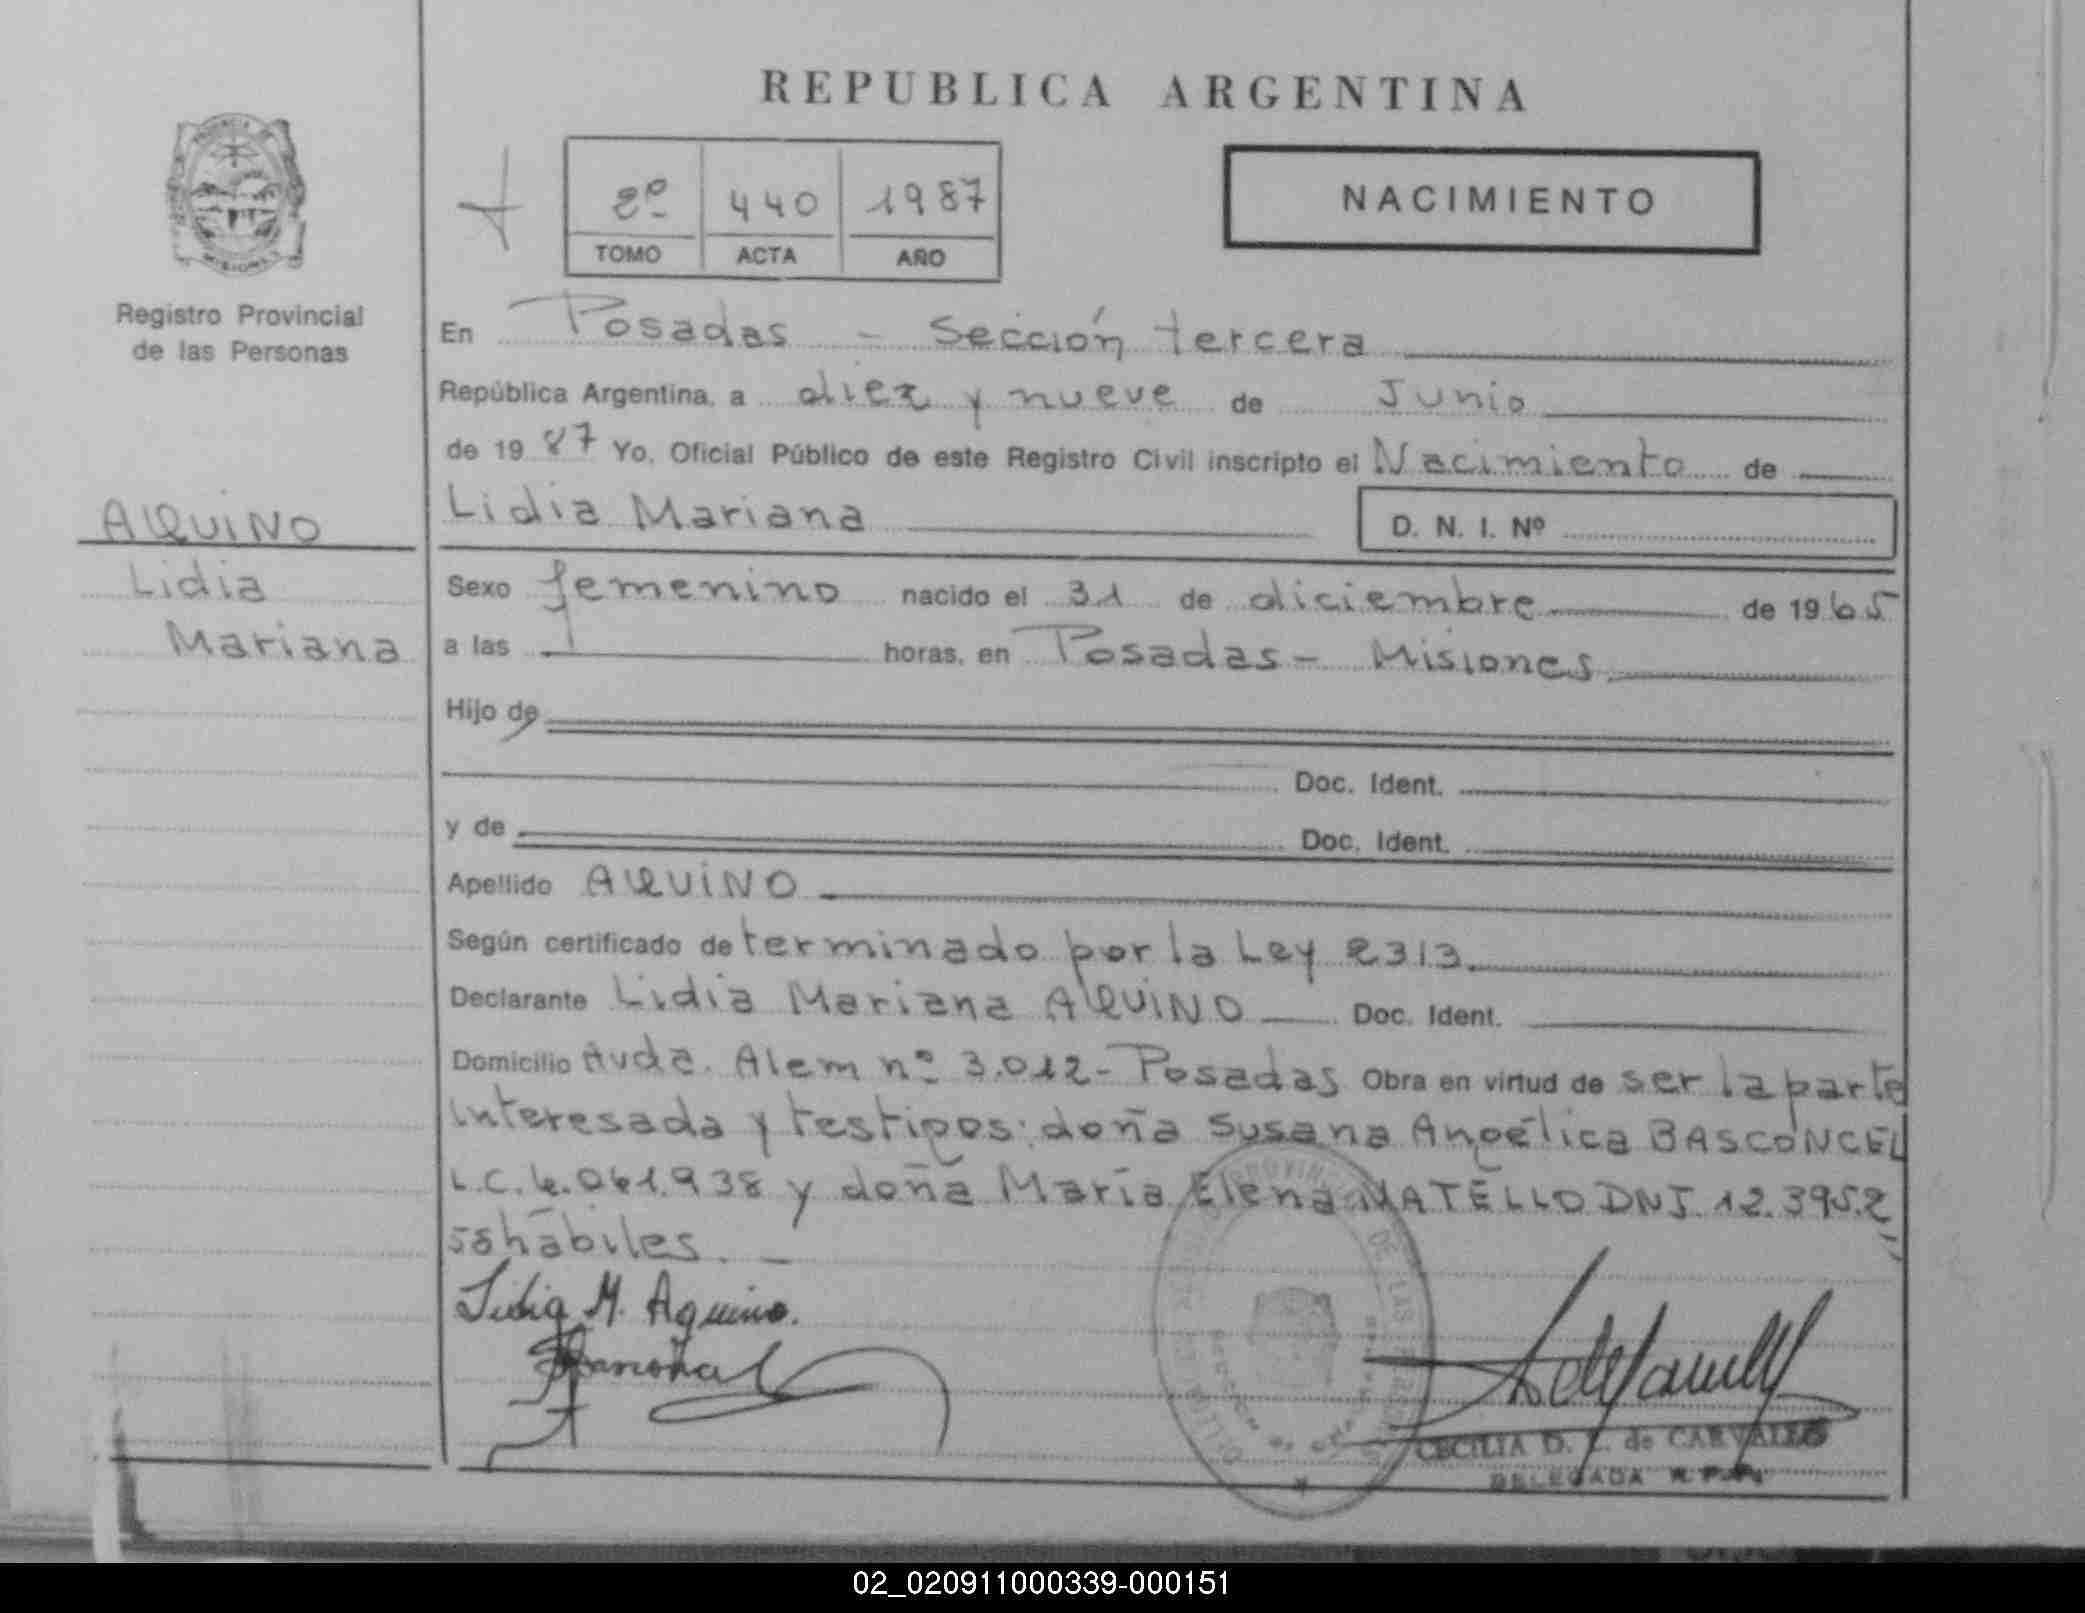 REPUBLICA ARGENTINA
2º 440 1987
TOMO ACTA AÑO
NACIMIENTO
Registro Provincial
de las Personas
AQUINO
Lidia
Mariana
En Posadas - Sección tercera
República Argentina, a diez y nueve de Junio
de 19 87 Yo, Oficial Público de este Registro Civil inscripto el Nacimiento de
Lidia Mariana
D. N. I. Nº
Sexo femenino nacido el 31 de diciembre de 19 65
a las horas, en Posadas - Misiones
Hijo de
Doc. Ident.
y de Doc. Ident.
Apellido AQUINO
Según certificado determinado por la Ley 2313.
Declarante Lidia Mariana AQUINO Doc. Ident.
Domicilio Avda. Alem nº 3.012 - Posadas Obra en virtud de ser la parte
interesada y testigos: doña Susana Angélica BASCONCEL
L.C. 4.061.938 y doña María Elena MATELLO DNI. 12.395.2
hábiles.
Lidia M. Aquino.
CECILIA D. L. de CARVALLO
DELEGADA R.P.P.
02_020911000339-000151